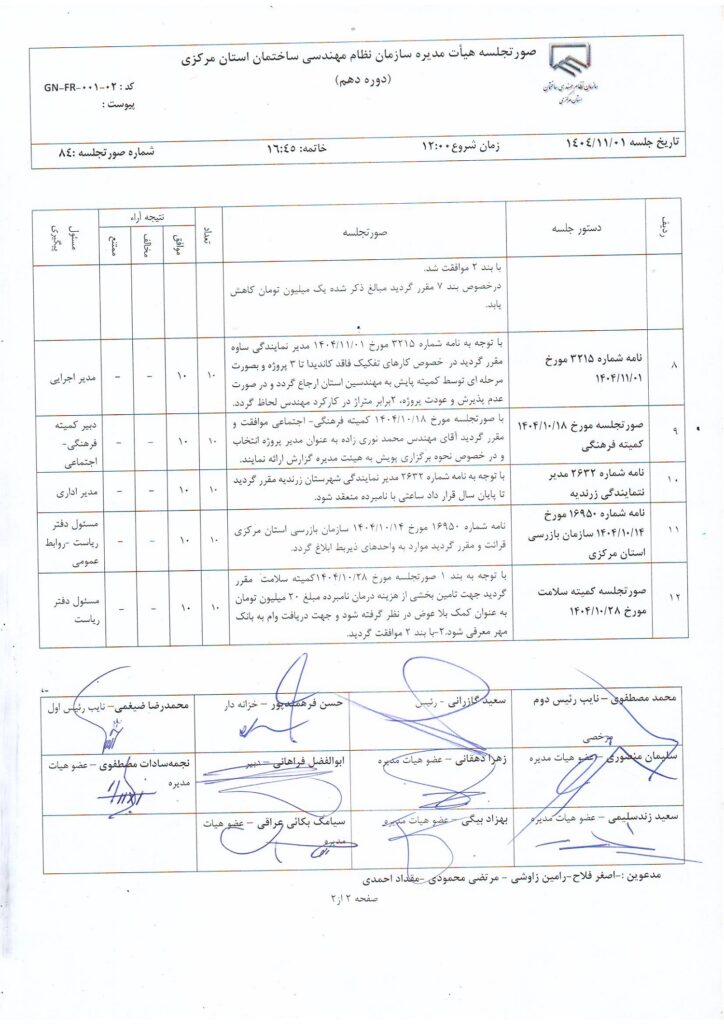 صورتجلسه هیأت مدیره سازمان نظام مهندسی ساختمان استان مرکزی
(دوره دهم)
سازمان نظام مهندسی ساختمان
استان مرکزی
کد : GN-FR-۰۰۱-۰۲
پیوست :
تاریخ جلسه ۱۴۰۴/۱۱/۰۱ زمان شروع ۱۲:۰۰ خاتمه: ۱۶:۴۵ شماره صورتجلسه :۸۴
ردیف دستور جلسه صورتجلسه تعداد نتیجه آراء مسئول پیگیری
موافق مخالف ممتنع
با بند ۲ موافقت شد.
درخصوص بند ۷ مقرر گردید مبالغ ذکر شده یک میلیون تومان کاهش
یابد.
۸
نامه شماره ۳۲۱۵ مورخ
۱۴۰۴/۱۱/۰۱
با توجه به نامه شماره ۳۲۱۵ مورخ ۱۴۰۴/۱۱/۰۱ مدیر نمایندگی ساوه
مقرر گردید در خصوص کارهای تفکیک فاقد کاندیدا تا ۳ پروژه و بصورت
مرحله ای توسط کمیته پایش به مهندسین استان ارجاع گردد و در صورت
عدم پذیرش و عودت پروژه، ۲برابر متراژ در کارکرد مهندس لحاظ گردد.
۱۰ ۱۰ – – مدیر اجرایی
۹
صورتجلسه مورخ ۱۴۰۴/۱۰/۱۸
کمیته فرهنگی
با صورتجلسه مورخ ۱۴۰۴/۱۰/۱۸ کمیته فرهنگی- اجتماعی موافقت و
مقرر گردید آقای مهندس محمد نوری زاده به عنوان مدیر پروژه انتخاب
و در خصوص نحوه برگزاری پویش به هیئت مدیره گزارش ارائه نمایند.
۱۰ ۱۰ – –
دبیر کمیته
فرهنگی-
اجتماعی
۱۰
نامه شماره ۲۶۳۲ مدیر
نتمایندگی زرندیه
با توجه به نامه شماره ۲۶۳۲ مدیر نمایندگی شهرستان زرندیه مقرر گردید
تا پایان سال قرار داد ساعتی با نامبرده منعقد شود.
۱۰ ۱۰ – – مدیر اداری
۱۱
نامه شماره ۱۶۹۵۰ مورخ
۱۴۰۴/۱۰/۱۴ سازمان بازرسی
استان مرکزی
نامه شماره ۱۶۹۵۰ مورخ ۱۴۰۴/۱۰/۱۴ سازمان بازرسی استان مرکزی
قرائت و مقرر گردید موارد به واحدهای ذیربط ابلاغ گردد.
۱۰ ۱۰ – –
مسئول دفتر
ریاست -روابط
عمومی
۱۲
صورتجلسه کمیته سلامت
مورخ ۱۴۰۴/۱۰/۲۸
با توجه به بند ۱ صورتجلسه مورخ ۱۴۰۴/۱۰/۲۸کمیته سلامت مقرر
گردید جهت تامین بخشی از هزینه درمان نامبرده مبلغ ۲۰ میلیون تومان
به عنوان کمک بلا عوض در نظر گرفته شود و جهت دریافت وام به بانک
مهر معرفی شود.۲-با بند ۲ موافقت گردید.
۱۰ ۱۰ – –
مسئول دفتر
ریاست
محمد مصطفوی – نایب رئیس دوم سعید گازرانی - رئیس حسن فرهمندپور – خزانه دار محمدرضا ضیغمی – نایب رئیس اول
مرخصی
سلیمان منصوری – عضو هیات مدیره زهرا دهقانی – عضو هیات مدیره ابوالفضل فراهانی – دبیر نجمه‌سادات مصطفوی – عضو هیات
مدیره
سعید زندسلیمی – عضو هیات مدیره بهزاد بیگی – عضو هیات مدیره سیامک بکائی عراقی – عضو هیات
مدیره
مدعوین :-اصغر فلاح-رامین زاوشی – مرتضی محمودی -مقداد احمدی
صفحه ۲ از۲